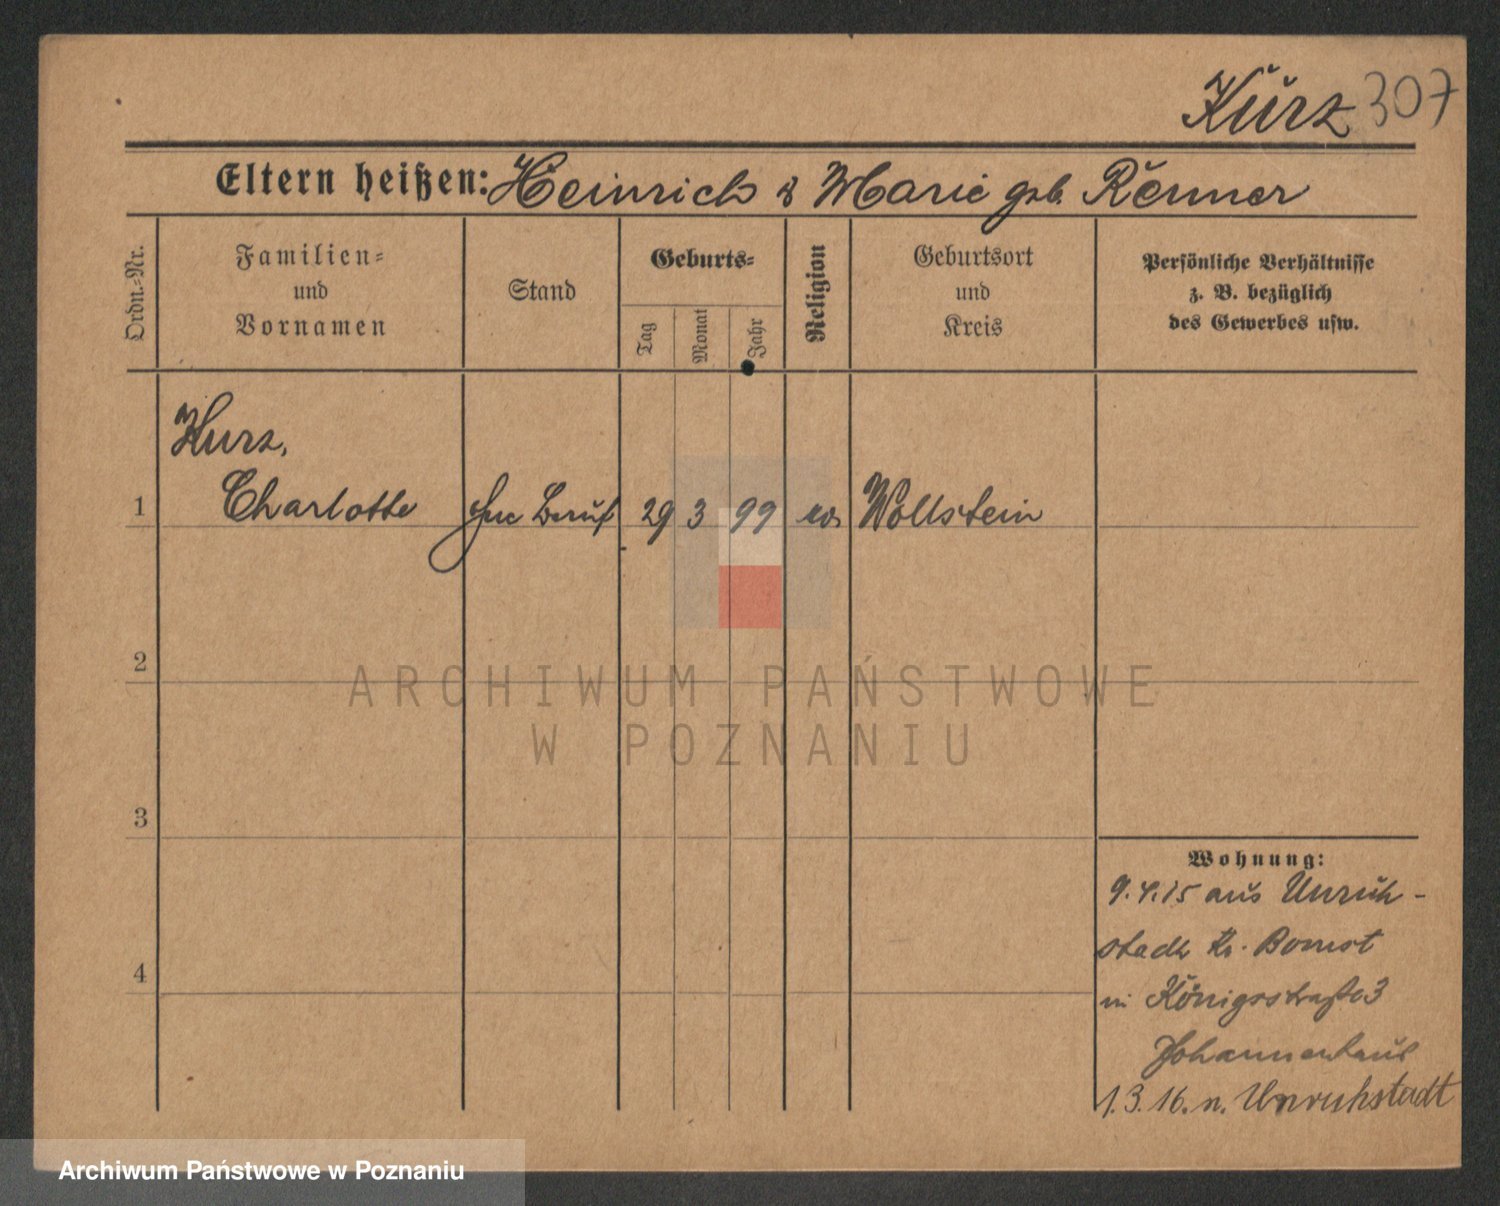 Kurz 307
Eltern heißen: Heinrich & Marie geb. Renner
Ordn.-Nr.
Familien-
und
Vornamen
Stand
Geburts-
Tag
Monat
Jahr
Religion
Geburtsort
und
Kreis
Persönliche Verhältnisse
z. B. bezüglich
des Gewerbes usw.
Kurz,
1 Charlotte Beruf 29 3 99 Wollstein
2
ARCHIWUM PAŃSTWOWE
W POZNANIU
3
Wohnung:
9.4.15 aus Unruh-
stadt Kr. Bomst
in Königsstraße 3
4
Johannenhaus
1.3.16. n. Unruhstadt
Archiwum Państwowe w Poznaniu